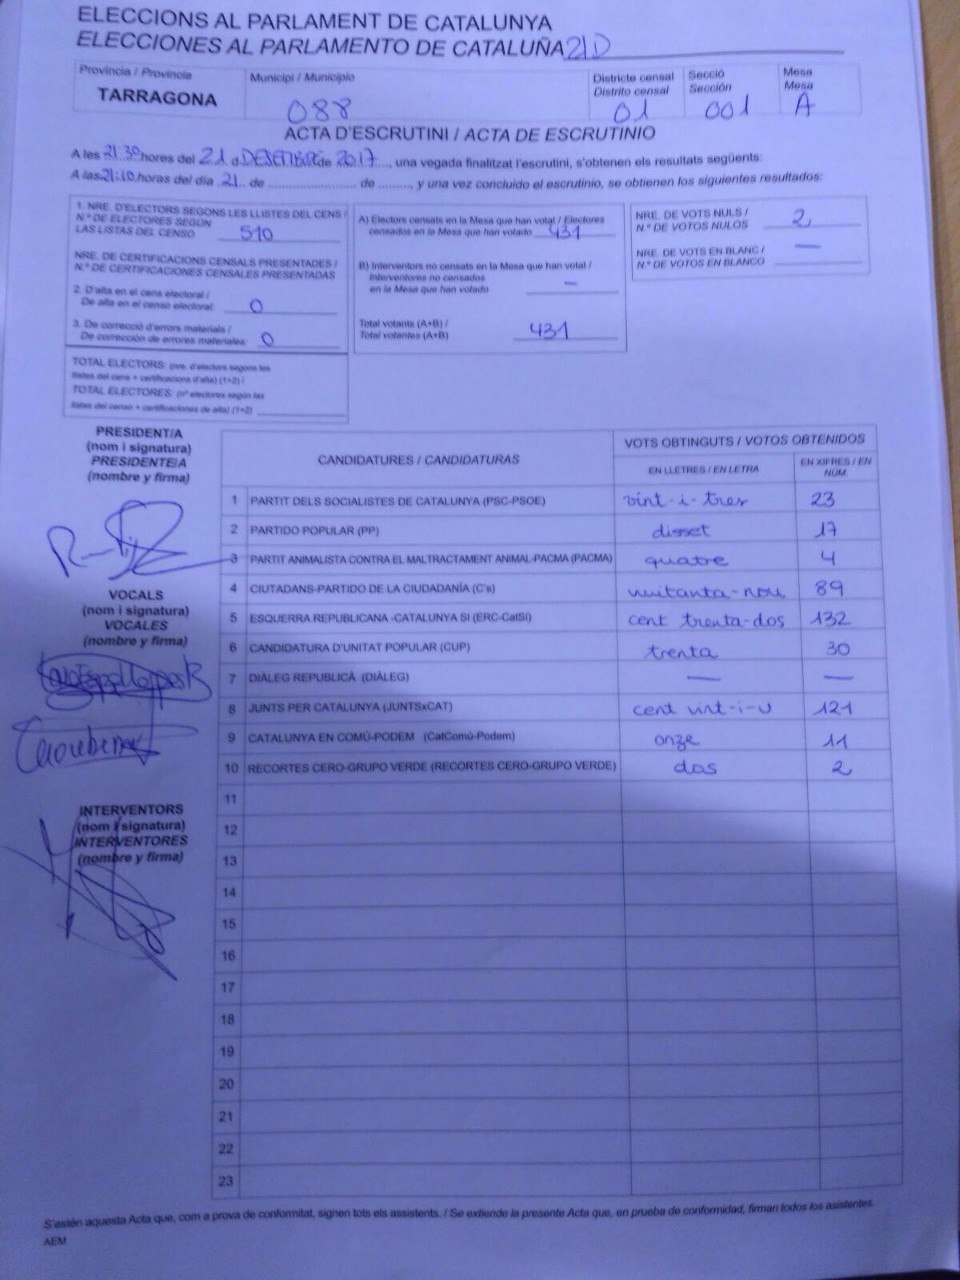 ELECCIONS AL PARLAMENT DE CATALUNYA
ELECCIONES AL PARLAMENTO DE CATALUÑA 21D
Província / Provincia
TARRAGONA
Municipi / Municipio
088
Districte censal
Distrito censal
01
Secció
Sección
001
Mesa
Mesa
A
ACTA D'ESCRUTINI / ACTA DE ESCRUTINIO
A les 21:30 hores del 21 d de 2017, una vegada finalitzat l'escrutini, s'obtenen els resultats següents:
A las 21:10 horas del día 21 de .................... de ........, y una vez concluido el escrutinio, se obtienen los siguientes resultados:
1. NRE. D'ELECTORS SEGONS LES LLISTES DEL CENS /
N.º DE ELECTORES SEGÚN
LAS LISTAS DEL CENSO 510
NRE. DE CERTIFICACIONS CENSALS PRESENTADES /
N.º DE CERTIFICACIONES CENSALES PRESENTADAS
2. D'alta en el cens electoral /
De alta en el censo electoral: 0
3. De correcció d'errors materials /
De corrección de errores materiales: 0
TOTAL ELECTORS: (nre. d'electors segons les
llistes del cens + certificacions d'alta) (1+2) /
TOTAL ELECTORES: (nº electores según las
listas del censo + certificaciones de alta) (1+2)
A) Electors censats en la Mesa que han votat / Electores
censados en la Mesa que han votado 431
B) Interventors no censats en la Mesa que han votat /
Interventores no censados
en la Mesa que han votado —
Total votants (A+B) /
Total votantes (A+B) 431
NRE. DE VOTS NULS /
N.º DE VOTOS NULOS 2
NRE. DE VOTS EN BLANC /
N.º DE VOTOS EN BLANCO —
PRESIDENT/A
(nom i signatura)
PRESIDENTE/A
(nombre y firma)
VOCALS
(nom i signatura)
VOCALES
(nombre y firma)
INTERVENTORS
(nom i signatura)
INTERVENTORES
(nombre y firma)
CANDIDATURES / CANDIDATURAS
VOTS OBTINGUTS / VOTOS OBTENIDOS
EN LLETRES / EN LETRA
EN XIFRES / EN NÚM.
1 PARTIT DELS SOCIALISTES DE CATALUNYA (PSC-PSOE) vint-i-tres 23
2 PARTIDO POPULAR (PP) disset 17
3 PARTIT ANIMALISTA CONTRA EL MALTRACTAMENT ANIMAL-PACMA (PACMA) quatre 4
4 CIUTADANS-PARTIDO DE LA CIUDADANÍA (C's) vuitanta-nou 89
5 ESQUERRA REPUBLICANA -CATALUNYA SI (ERC-CatSI) cent trenta-dos 132
6 CANDIDATURA D'UNITAT POPULAR (CUP) trenta 30
7 DIÀLEG REPUBLICÀ (DIÀLEG) — —
8 JUNTS PER CATALUNYA (JUNTSxCAT) cent vint-i-u 121
9 CATALUNYA EN COMÚ-PODEM (CatComú-Podem) onze 11
10 RECORTES CERO-GRUPO VERDE (RECORTES CERO-GRUPO VERDE) dos 2
11
12
13
14
15
16
17
18
19
20
21
22
23
S'estén aquesta Acta que, com a prova de conformitat, signen tots els assistents. / Se extiende la presente Acta que, en prueba de conformidad, firman todos los asistentes.
AEM